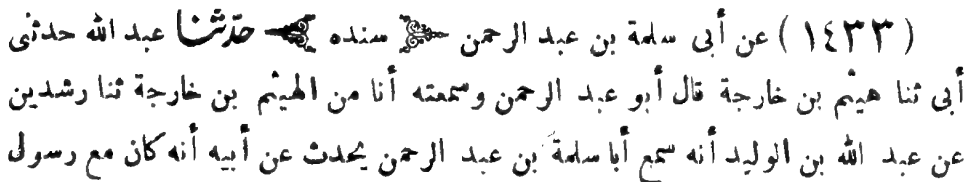 (١٤٣٣) عن أبى سلمة بن عبد الرحمن ﴿ سنده ﴾ حدّثنا عبد الله حدثنى
أبى ثنا هيثم بن خارجة قال أبو عبد الرحمن وسمعته أنا من الهيثم بن خارجة ثنا رشدين
عن عبد الله بن الوليد أنه سمع أبا سلمة بن عبد الرحمن يحدث عن أبيه أنه كان مع رسول